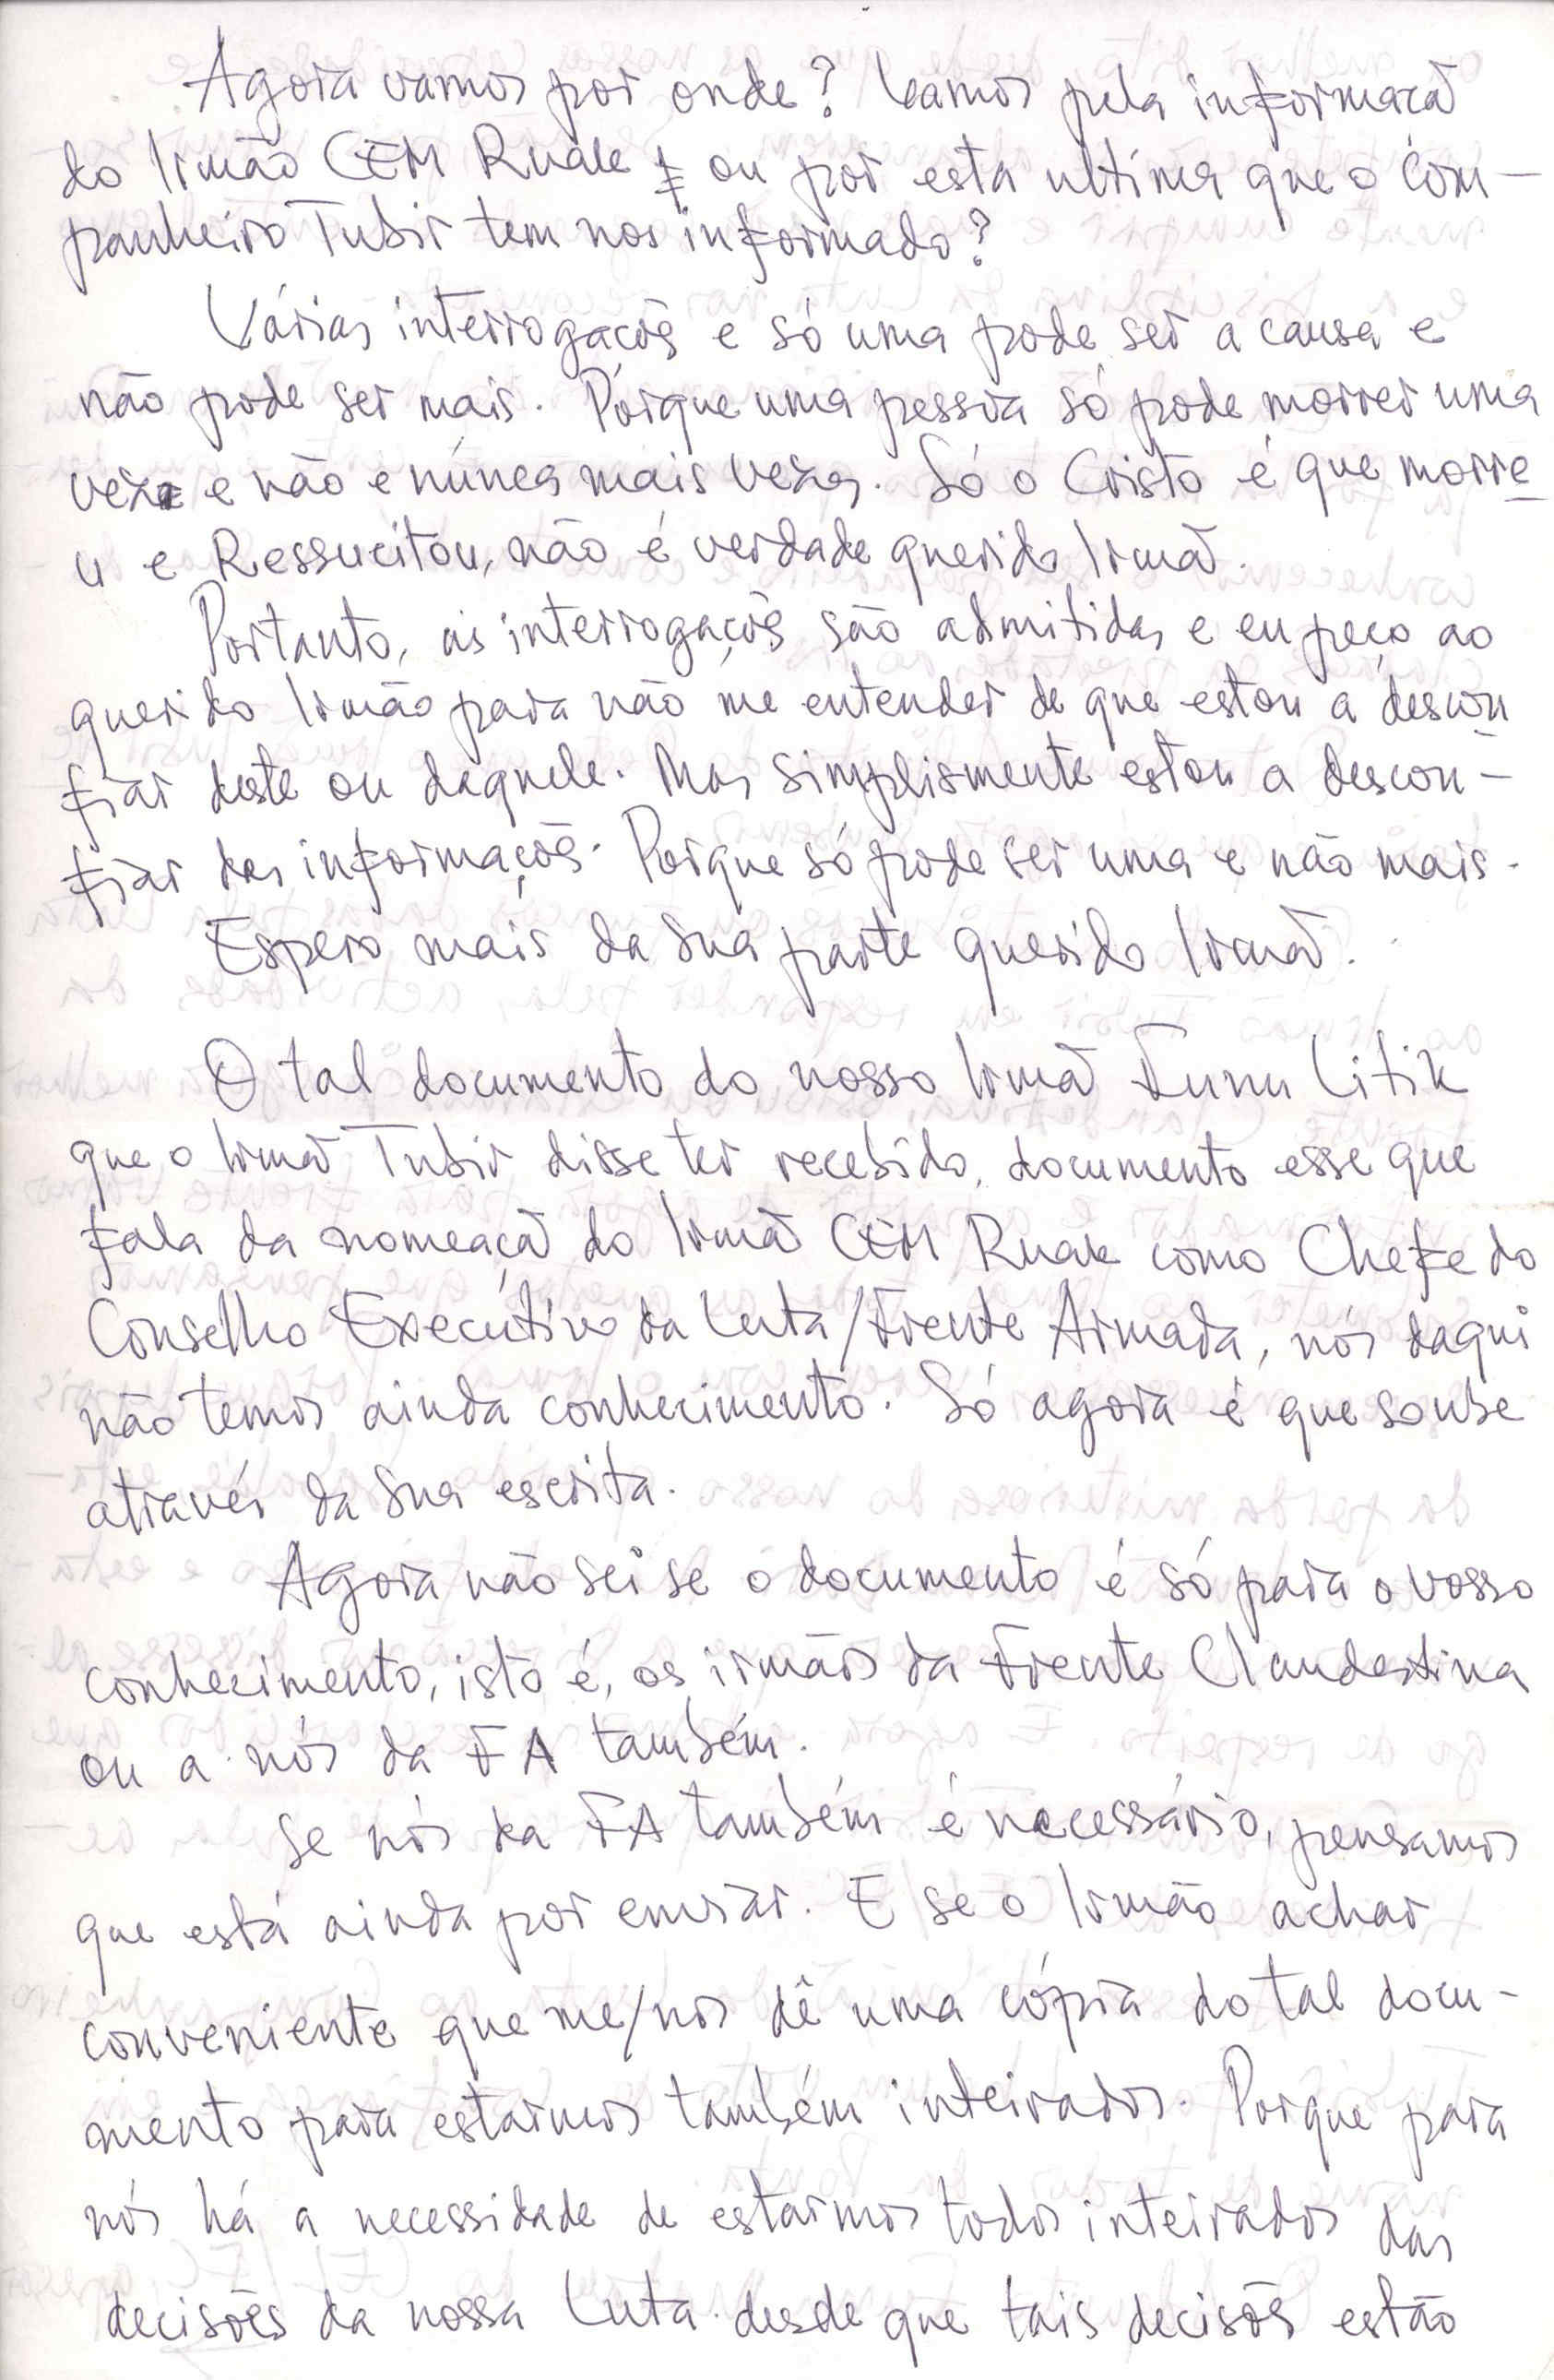 Agora vamos por onde? Vamos pela informacã
do Irmão CEM Ruak ou por esta ultíma que o Com-
panheiro Tubir tem nos informado?
Várias interrogacõs e só uma pode ser a causa e
não pode ser mais. Pórque uma pessoa só pode morrer uma
vez e não e núnca mais vezes. Só o Cristo é que morre
u e Ressucitou, não é verdade querido Irmã.
Portanto, as interrogaçõs são admitidas e eu peço ao
querido Irmão para não me entender de que estou a descon
fiar deste ou daquele. Mas simplismente estou a descon-
fiar das informaçõs. Porque só pode ser uma e não mais.
Espero mais da Sua parte querido Irmã.
O tal documento do nosso Irmã Funu Litik
que o Irmã Tubir disse ter recebido, documento esse que
fala da nomeaçã do Irmã CEM Ruak como Chefe do
Conselho Execútivo da Luta/Frente Armada, nós daqui
não temos ainda conhecimento. Só agora é que soube
através da Sua escrita.
Agora não sei se o documento é só para o vosso
conhecimento, isto é, os irmãos da Frente Clandestina
ou a nós da FA também.
Se nós da FA também é necessário, pensamos
que está ainda por enviar. E se o Irmão achar
conveniente que me/nos dê uma cópia do tal docu-
mento para estarmos também inteirados. Porque para
nós há a necessidade de estarmos todos inteirados das
decisões da nossa Luta desde que tais decisõs estão